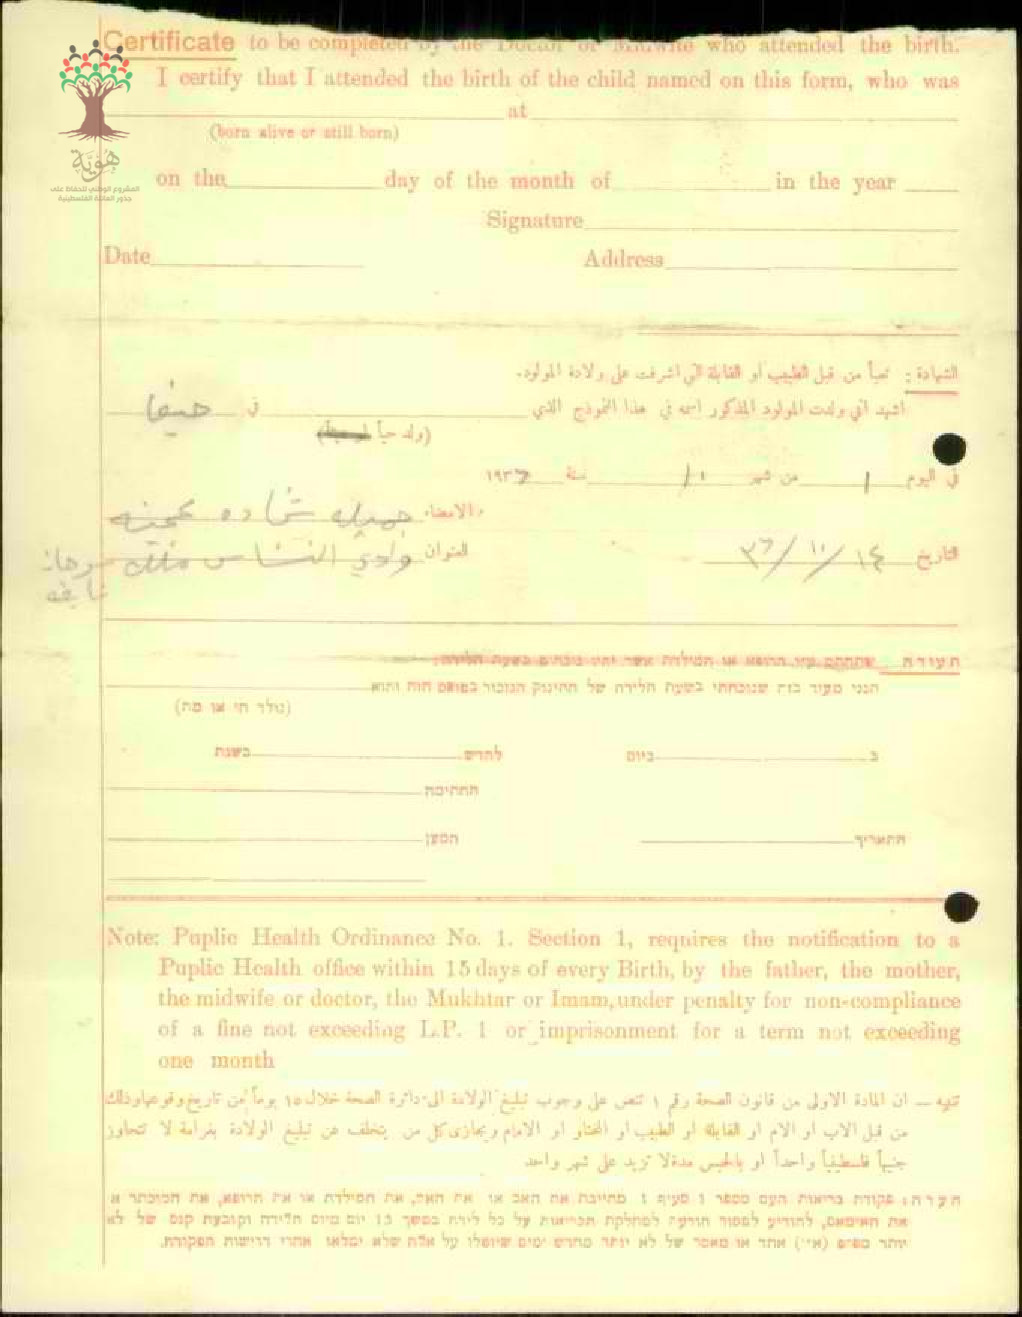 هوية
المشروع الوطني للحفاظ على
جذور العائلة الفلسطينية
Certificate to be completed by the Doctor or Midwife who attended the birth.
I certify that I attended the birth of the child named on this form, who was
at
(born alive or still born)
on the day of the month of in the year
Signature
Date Address
الشهادة : تعبأ من قبل الطبيب او القابلة التي اشرفت على ولادة المولود.
اشهد اني ولدت المولود المذكور اسمه في هذا النموذج الذي في حيفا
(ولد حياً او ميتاً)
في اليوم ١ من شهر ١٠ سنة ١٩٣٦
الامضاء جميله شحاده
التاريخ ١٤/١٠/٣٦ العنوان وادي النسناس ملك
תעודה שתחתם ע״י הרופא או המילדת אשר יהיו נוכחים בשעת הלידה:
הנני מעיד בזה שנוכחתי בשעת הלידה של התינוק הנזכור בטופס הזה והוא
(נולד חי או מת)
ב ביום לחדש בשנת
החתימה
התאריך המען
Note: Puplic Health Ordinance No. 1. Section 1, requires the notification to a
Puplic Health office within 15 days of every Birth, by the father, the mother,
the midwife or doctor, the Mukhtar or Imam, under penalty for non-compliance
of a fine not exceeding L.P. 1 or imprisonment for a term not exceeding
one month
تنبيه — ان المادة الاولى من قانون الصحة رقم ١ تنص على وجوب تبليغ الولادة الى دائرة الصحة خلال ١٥ يوماً من تاريخ وقوعها وذلك
من قبل الاب او الام او القابلة او الطبيب او المختار او الامام ويجازى كل من يتخلف عن تبليغ الولادة بغرامة لا تتجاوز
جنيهاً فلسطينياً واحداً او بالحبس مدة لا تزيد على شهر واحد
הערה: פקודת בריאות העם מספר 1 סעיף 1 מחייבת את האב או את האם, את המילדת או את הרופא, את המוכתר או
את האימאם, להודיע למסור הודעה למחלקת הבריאות על כל לידה במשך 15 יום מיום הלידה וקובעת קנס של לא
יותר מפונט (א״י) אחד או מאסר של לא יותר מחדש ימים שיוטלו על אלה שלא ימלאו אחרי דרישות הפקודה.